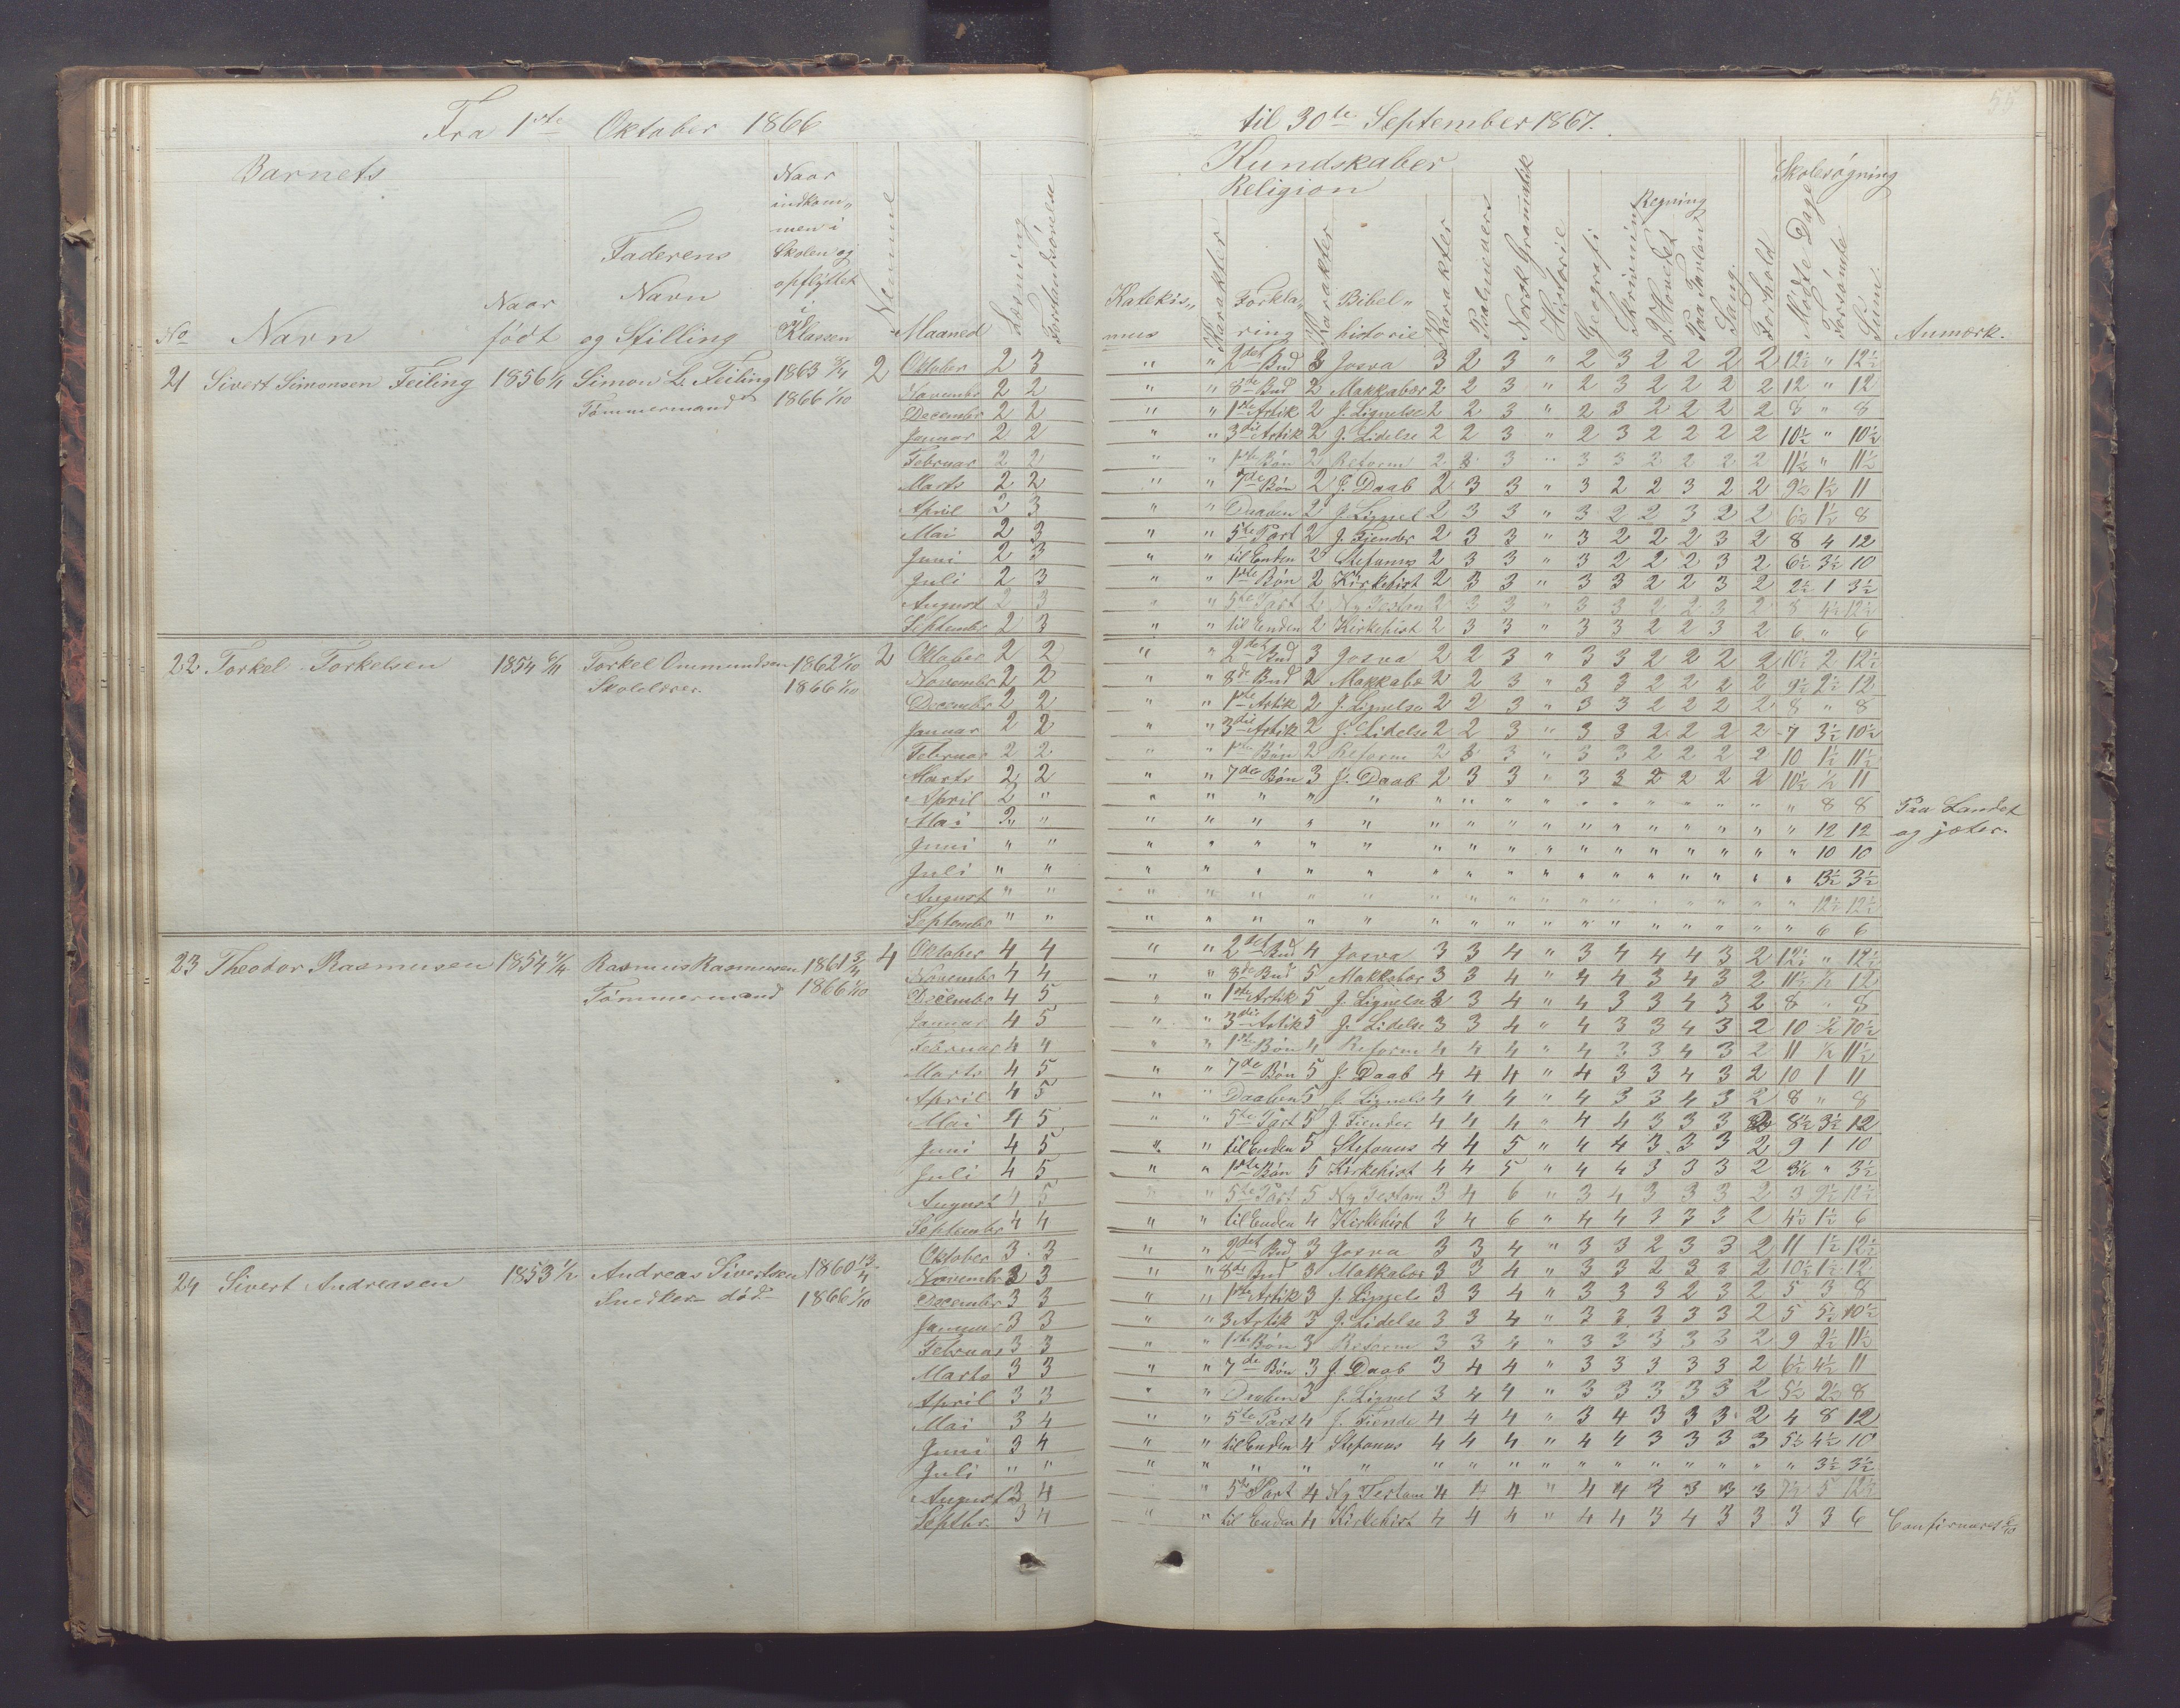 55
Fra 1ste Oktober 1866 til 30te September 1867.
Barnets
Kundskaber
Skolesøgning
Religion
No Navn Naar født Faderens Navn og Stilling Naar indkom„ men i Skolen og opflyttet i Klassen Nummer Maaned Læsning Forstandsøvelse
Katekis„ mus Karakter Forkla„ ring Karakter Bibel„ historie Karakter Psalmevers Norsk Gramatik Historie Geografi Skrivning Regning I Hovedet Paa Tavlen Sang Forhold Mødte Dage Forsømte Sum Anmærk.
21 Sivert Simonsen Feiling 1856 Simon L. Feiling 1863 2 Oktober 2 3 " " 2det Bud 3 Josva 3 2 3 " 2 3 2 2 2 2 12½ " 12½
Tømmermand 1866 1/10 November 2 2 " " 8de Bud 2 Makkabær 2 2 3 " 2 3 2 2 2 2 12 " 12
December 2 2 " " 1ste Artik 2 J. Lignelse 2 2 3 " 2 3 2 2 2 2 8 " 8
Januar 2 2 " " 3die Artik 2 J. Lidelse 2 2 3 " 2 3 2 2 2 2 10½ " 10½
Februar 2 2 " " 1ste Bøn 2 Reform 2 3 3 " 3 3 2 2 2 2 11½ " 11½
Marts 2 2 " " 7de Bøn 2 J. Daab 2 3 3 " 3 2 2 3 2 2 9½ 1½ 11
April 2 3 " " Daaben 2 J. Lignel 2 3 3 " 3 2 2 3 2 2 6½ 1½ 8
Mai 2 3 " " 5te Part 2 J. Fjender 2 3 3 " 3 2 2 2 3 2 8 4 12
Juni 2 3 " " til Enden 2 Stefanus 2 3 3 " 3 2 2 2 3 2 6½ 3½ 10
Juli 2 3 " " 1ste Bøn 2 Kirkehist 2 3 3 " 3 3 2 2 3 2 2½ 1 3½
August 2 3 " " 5te Part 2 Ny Testam 2 3 3 " 3 3 2 2 3 2 8 4½ 12½
September 2 3 " " til Enden 2 Kirkehist 2 3 3 " 3 3 2 2 3 2 6 " 6
22 Torkel Torkelsen 1854 Torkel Ommundsen 1862 1/10 2 Oktober 2 2 " " 2det Bud 3 Josva 2 2 3 " 3 3 2 2 2 2 10½ 2 12½
Skolelærer 1866 1/10 November 2 2 " " 8de Bud 2 Makkabæ 2 2 3 " 3 3 2 2 2 2 9½ 2½ 12
December 2 2 " " 1ste Artik 2 J. Lignelse 2 2 3 " 3 3 2 2 2 2 8 " 8
Januar 2 2 " " 3die Artik 2 J. Lidelse 2 2 3 " 3 3 2 2 2 2 7 3½ 10½
Februar 2 2 " " 1ste Bøn 2 Reform 2 3 3 " 3 3 2 2 2 2 10 1½ 11½
Marts 2 2 " " 7de Bøn 3 J. Daab 2 3 3 " 3 3 2 2 2 2 10½ ½ 11
April 2 " " " " " " " " " " " " " " " " " " 8 8 Paa Landet
Mai " " " " " " " " " " " " " " " " " " 12 12 og jæter.
Juni " " " " " " " " " " " " " " " " " " " 10 10
Juli " " " " " " " " " " " " " " " " " " " 3½ 3½
August " " " " " " " " " " " " " " " " " " " 12½ 12½
September " " " " " " " " " " " " " " " " " " " 6 6
23 Theodor Rasmusen 1854 Rasmus Rasmusen 1861 4 Oktober 4 4 " " 2det Bud 4 Josva 3 3 4 " 3 4 4 4 3 2 12½ " 12½
Tømmermand 1866 1/10 November 4 4 " " 8de Bud 5 Makkabær 3 3 4 " 4 4 3 4 3 2 11½ ½ 12
December 4 5 " " 1ste Artik 5 J. Lignelse 3 3 4 " 4 3 3 4 3 2 8 " 8
Januar 4 5 " " 3die Artik 5 J. Lidelse 3 3 4 " 4 3 3 4 3 2 10 ½ 10½
Februar 4 4 " " 1ste Bøn 4 Reform 4 4 4 " 4 3 3 4 3 2 11 ½ 11½
Marts 4 5 " " 7de Bøn 5 J. Daab 4 4 4 " 4 3 3 4 3 2 10 1 11
April 4 5 " " Daaben 5 J. Lignels 4 4 4 " 4 3 3 4 3 2 8 " 8
Mai 4 5 " " 5te Part 5 J. Fiender 4 4 4 " 4 4 3 3 3 2 8½ 3½ 12
Juni 4 5 " " til Enden 5 Stefanus 4 4 5 " 4 4 3 3 3 2 9 1 10
Juli 4 5 " " 1ste Bøn 5 Kirkehist 4 4 5 " 4 4 3 3 3 2 3½ " 3½
August 4 5 " " 5te Part 5 Ny Testam 3 4 6 " 3 4 3 3 3 2 3 9½ 12½
September 4 4 " " til Enden 4 Kirkehist 3 4 6 " 4 4 3 3 3 2 4½ 1½ 6
24 Sivert Andreasen 1853 1/2 Andreas Sivertsen 1860 13/4 Oktober 3 3 " " 2det Bud 3 Josva 3 3 4 " 3 3 2 3 3 2 11 1½ 12½
Snedker død 1866 1/10 November 3 3 " " 8de Bud 3 Makkabær 3 3 4 " 3 3 2 3 3 2 10½ 1½ 12
December 3 3 " " 1ste Artik 3 J. Lignels 3 3 4 " 3 3 3 2 3 2 5 3 8
Januar 3 3 " " 3 Artik 3 J. Lidelse 3 3 4 " 3 3 3 3 3 2 5 5½ 10½
Februar 3 3 " " 1ste Bøn 3 Reform 3 3 4 " 3 3 3 3 3 2 9 2½ 11½
Marts 3 3 " " 7de Bøn 3 J Daab 3 4 4 " 3 3 3 3 3 2 6½ 4½ 11
April 3 3 " " Daaben 3 J. Lignel 3 4 4 " 3 3 3 3 3 2 5½ 2½ 8
Mai 3 4 " " 5te Part 4 J. Fiende 4 4 4 " 3 4 3 3 3 2 4 8 12
Juni 3 4 " " til Enden 4 Stefanus 4 4 4 " 4 4 3 3 3 3 5½ 4½ 10
Juli " " " " " " " " " " " " " " " " " " " 3½ 3½
August 3 4 " " 5te Part 4 Ny Testam 4 4 4 " 4 4 3 3 3 3 7½ 5 12½
Septbr. 3 4 " " til Enden 4 Kirkehist 4 4 4 " 4 4 3 4 3 3 3 3 6 Confirmeres